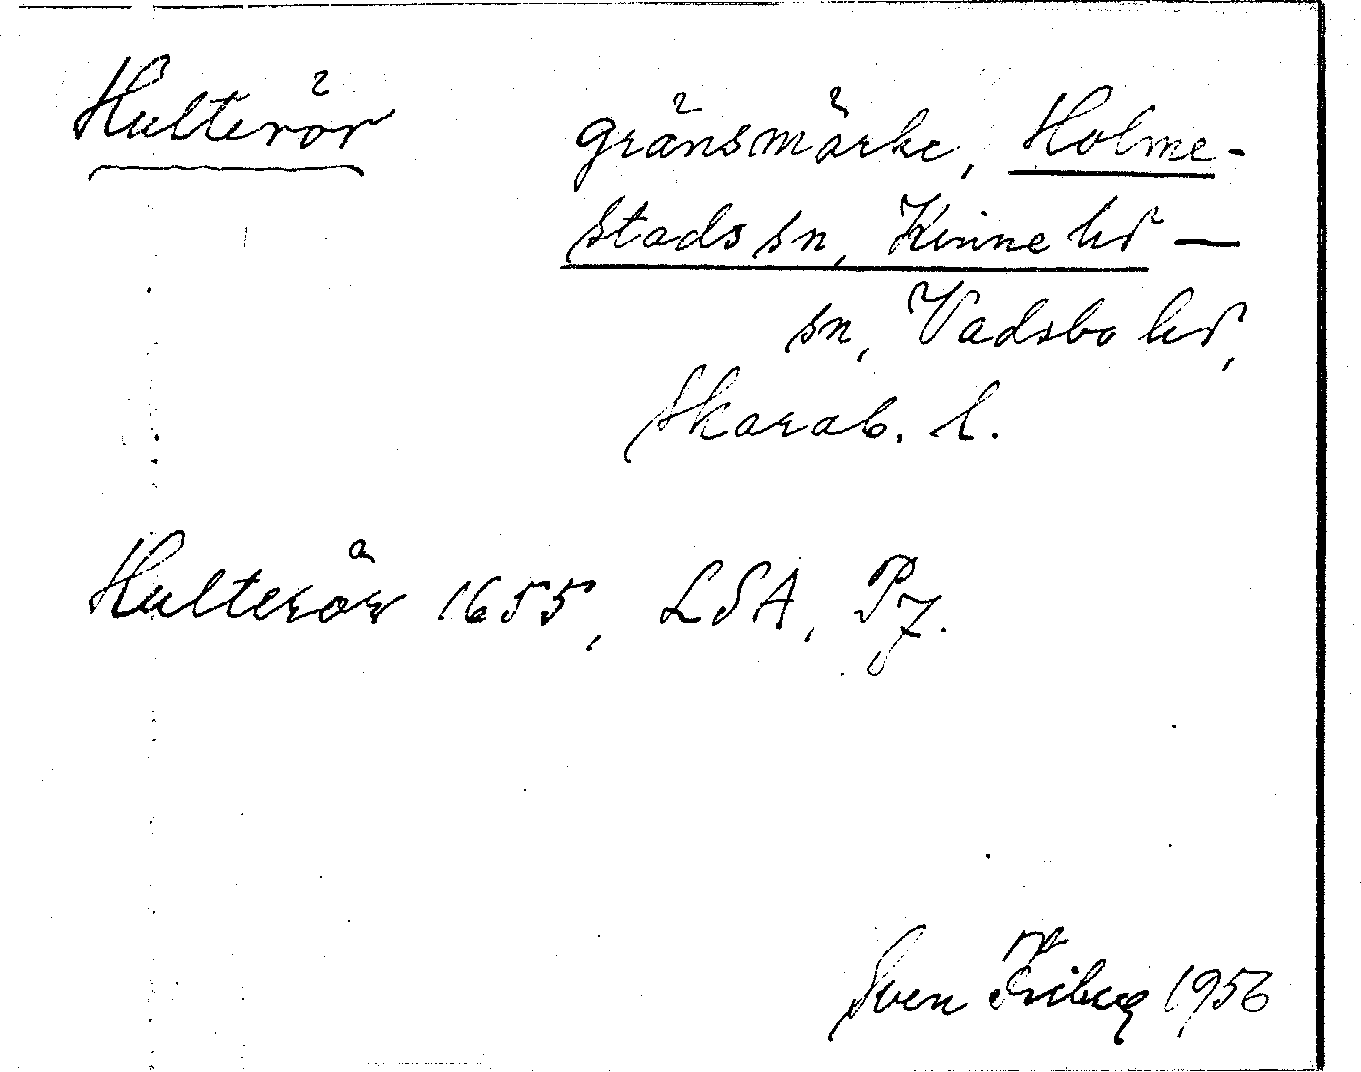 Hulterör gränsmärke, Holme-
stads sn, Kinne hd —
sn, Vadsbo hd,
Skarab. l.
Hulterör 1655, LSA, P7.
Sven Friberg 1956